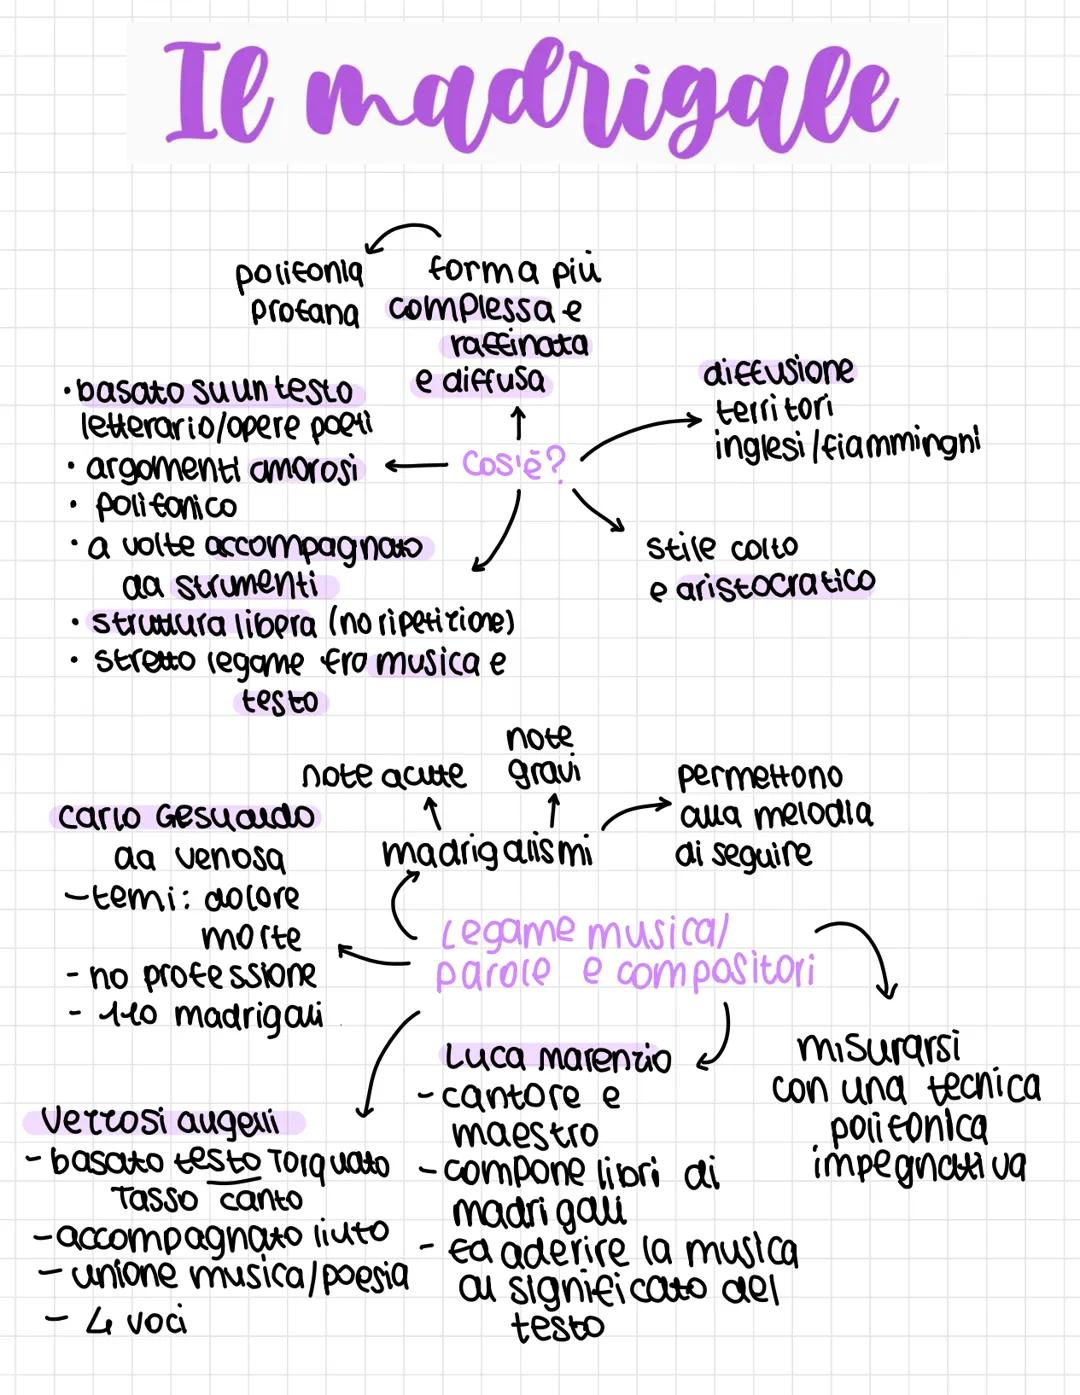 Il madrigale
polifonia
profana
forma più
complessa e
raffinata
e diffusa
diffusione
territori
inglesi/fiamminghi
• basato su un testo
letterario/opere poeti
• argomenti amorosi
Cos'è?
• polifonico
• a volte accompagnato
da strumenti
stile colto
e aristocratico
• struttura libera (no ripetizione)
• stretto legame fra musica e
testo
note acute
note
gravi
permettono
alla melodia
di seguire
madrigalismi
Carlo Gesualdo
da Venosa
- temi: dolore
morte
- no professione
- 110 madrigali
Legame musica/
parole e compositori
Luca Marenzio
- cantore e
maestro
- compone libri di
madrigali
- fa aderire la musica
al significato del
testo
misurarsi
con una tecnica
polifonica
impegnativa
Vezzosi augelli
- basato testo Torquato
Tasso canto
- accompagnato liuto
- unione musica/poesia
- 4 voci